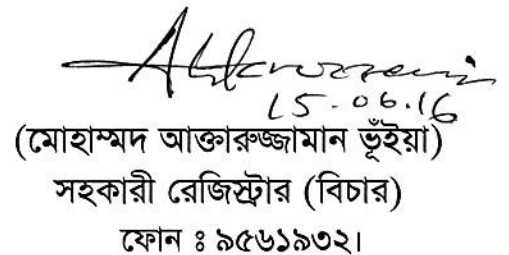 15.06.16
(মোহাম্মদ আক্তারুজ্জামান ভূঁইয়া)
সহকারী রেজিস্ট্রার (বিচার)
ফোন ঃ ৯৫৬১৯৩২।